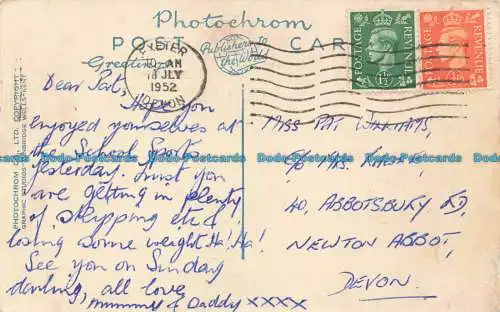 Photochrom
POST CARD
Publishers to
the World
Greetings
EXETER
10 AM
18 JLY
1952
DEVON
POSTAGE REVENUE
½D
POSTAGE REVENUE
PHOTOCHROM CO., LTD.
COPYRIGHT
Dear Pat,
Hope you
enjoyed yourselves at
the School Sports
yesterday. Trust you
are getting in plenty
of skipping etc &
losing some weight Ha! Ha!
See you on Sunday
darling, all love
Mummy & Daddy xxxx
MISS PAT WILLIAMS,
c/o MRS.
40, ABBOTSBURY RD,
NEWTON ABBOT,
DEVON.
Dodo-Postcards Dodo-Postcards Dodo-Postcards Dodo-Postcards